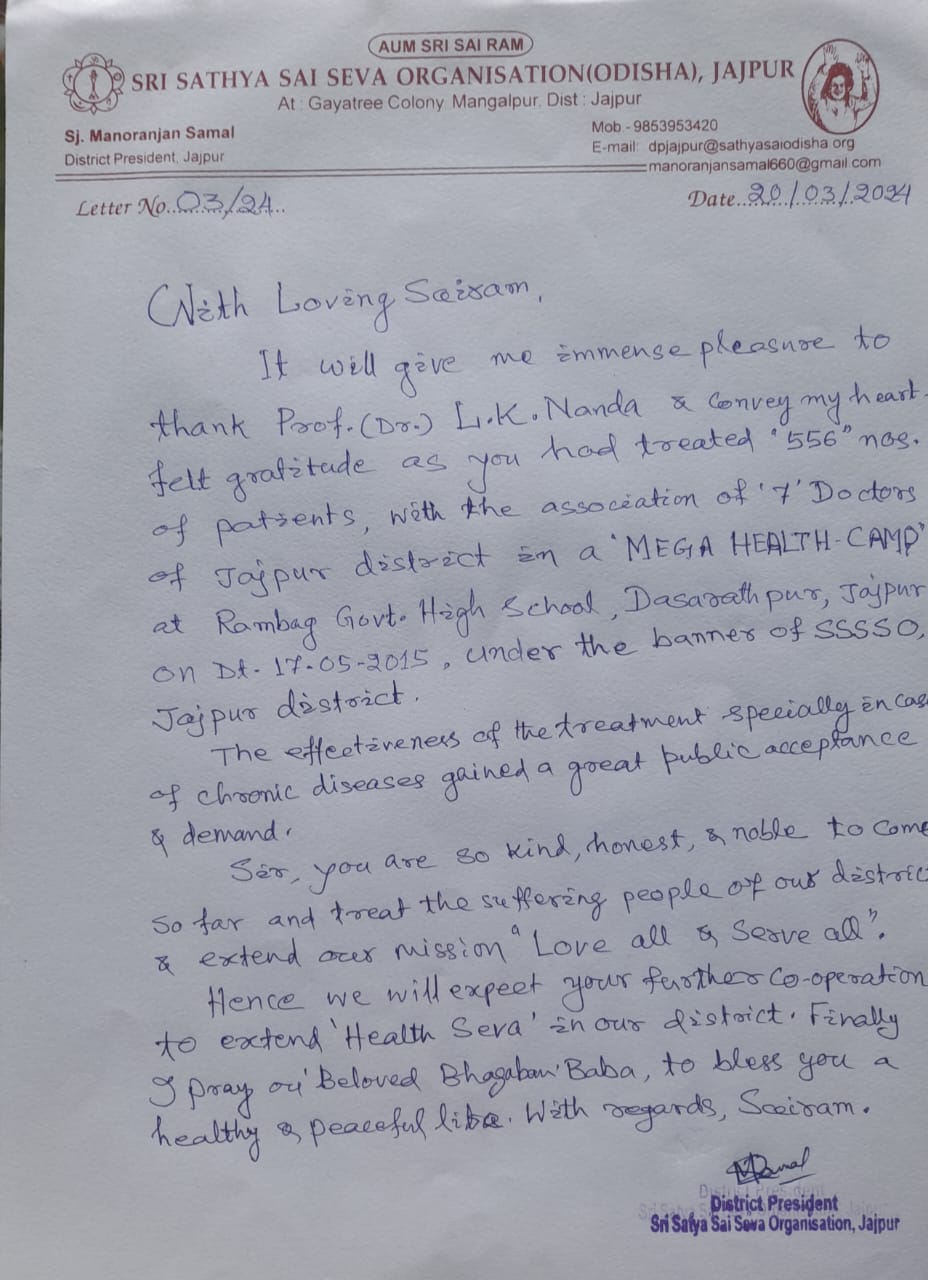 AUM SRI SAI RAM
SRI SATHYA SAI SEVA ORGANISATION(ODISHA), JAJPUR
At : Gayatree Colony, Mangalpur, Dist : Jajpur
Sj. Manoranjan Samal
District President, Jajpur
Mob.- 9853953420
E-mail: dpjajpur@sathyasaiodisha.org
manoranjansamal660@gmail.com
Letter No. 03/24
Date. 20/03/2024
With Loving Sairam,
It will give me immense pleasure to
thank Prof. (Dr.) L.K. Nanda & convey my heart-
felt gratitude as you had treated "556" nos.
of patients, with the association of '7' Doctors
of Jajpur district in a 'MEGA HEALTH-CAMP'
at Rambag Govt. High School, Dasarathpur, Jajpur
on Dt- 17-05-2015, under the banner of SSSSO,
Jajpur district.
The effectiveness of the treatment specially in cas
of chronic diseases gained a great public acceptance
& demand.
Sir, you are so kind, honest, & noble to come
so far and treat the suffering people of our distric
& extend our mission "Love all & Serve all".
Hence we will expect your further co-operation
to extend 'Health Seva' in our district. Finally
I pray our Beloved Bhagaban Baba, to bless you a
healthy & peaceful life. With regards, Sairam.
District President
Sri Satya Sai Seva Organisation, Jajpur